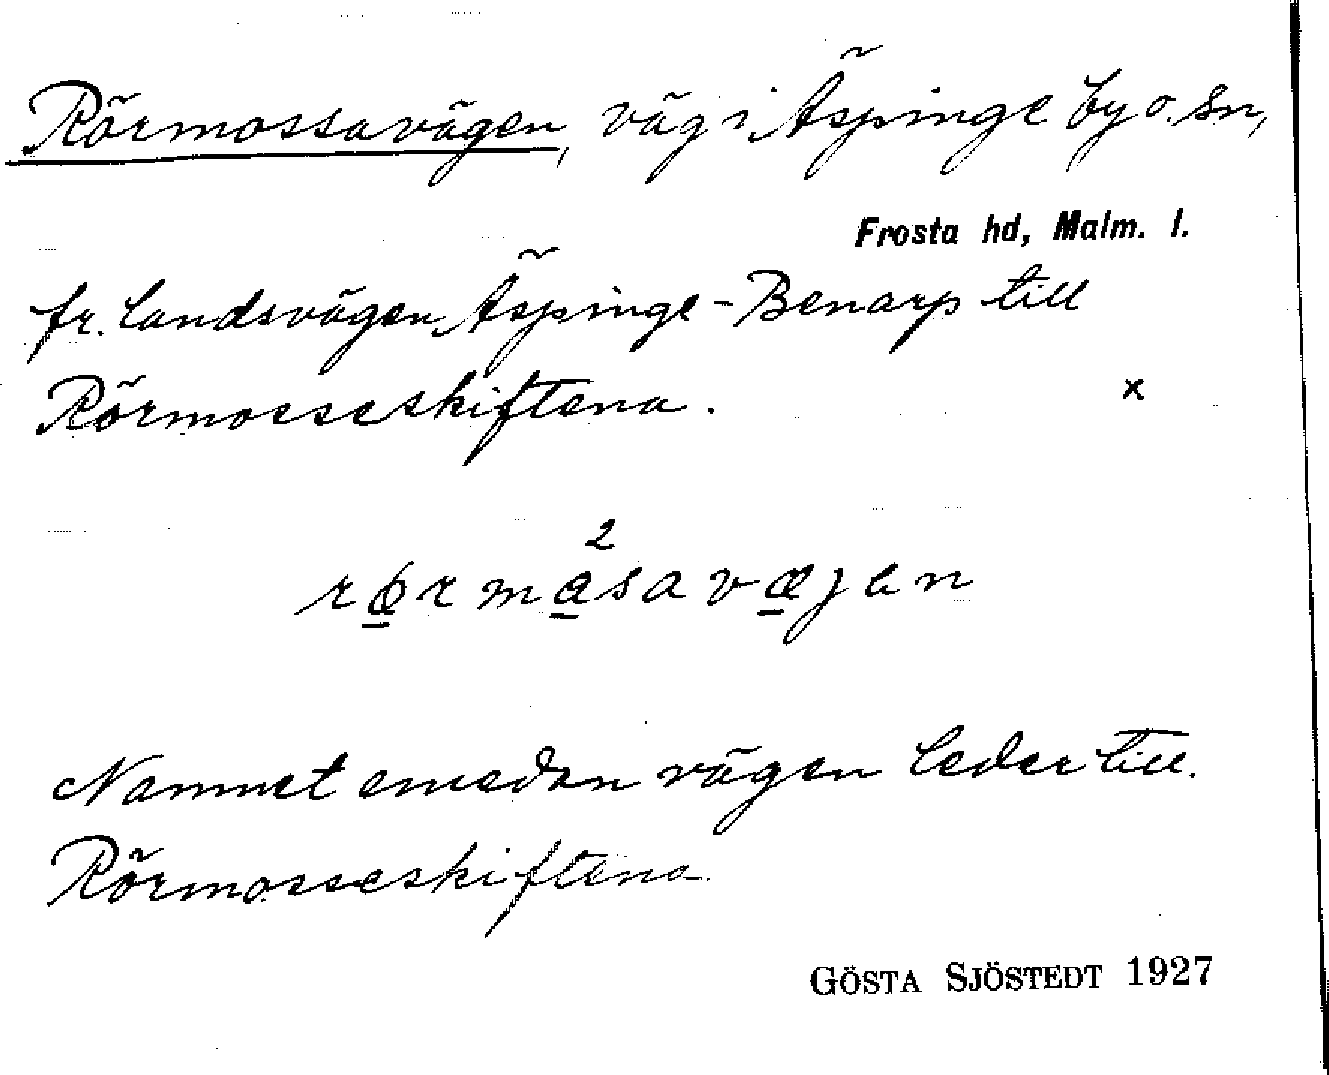 Rörmossavägen, väg i Äspinge by o. sn,
Frosta hd, Malm. l.
fr. landsvägen Äspinge - Benarp till
Rörmosseskiftena. x
2
rørmåsavæjen
Namnet emedan vägen leder till
Rörmosseskiftena.
GÖSTA SJÖSTEDT 1927